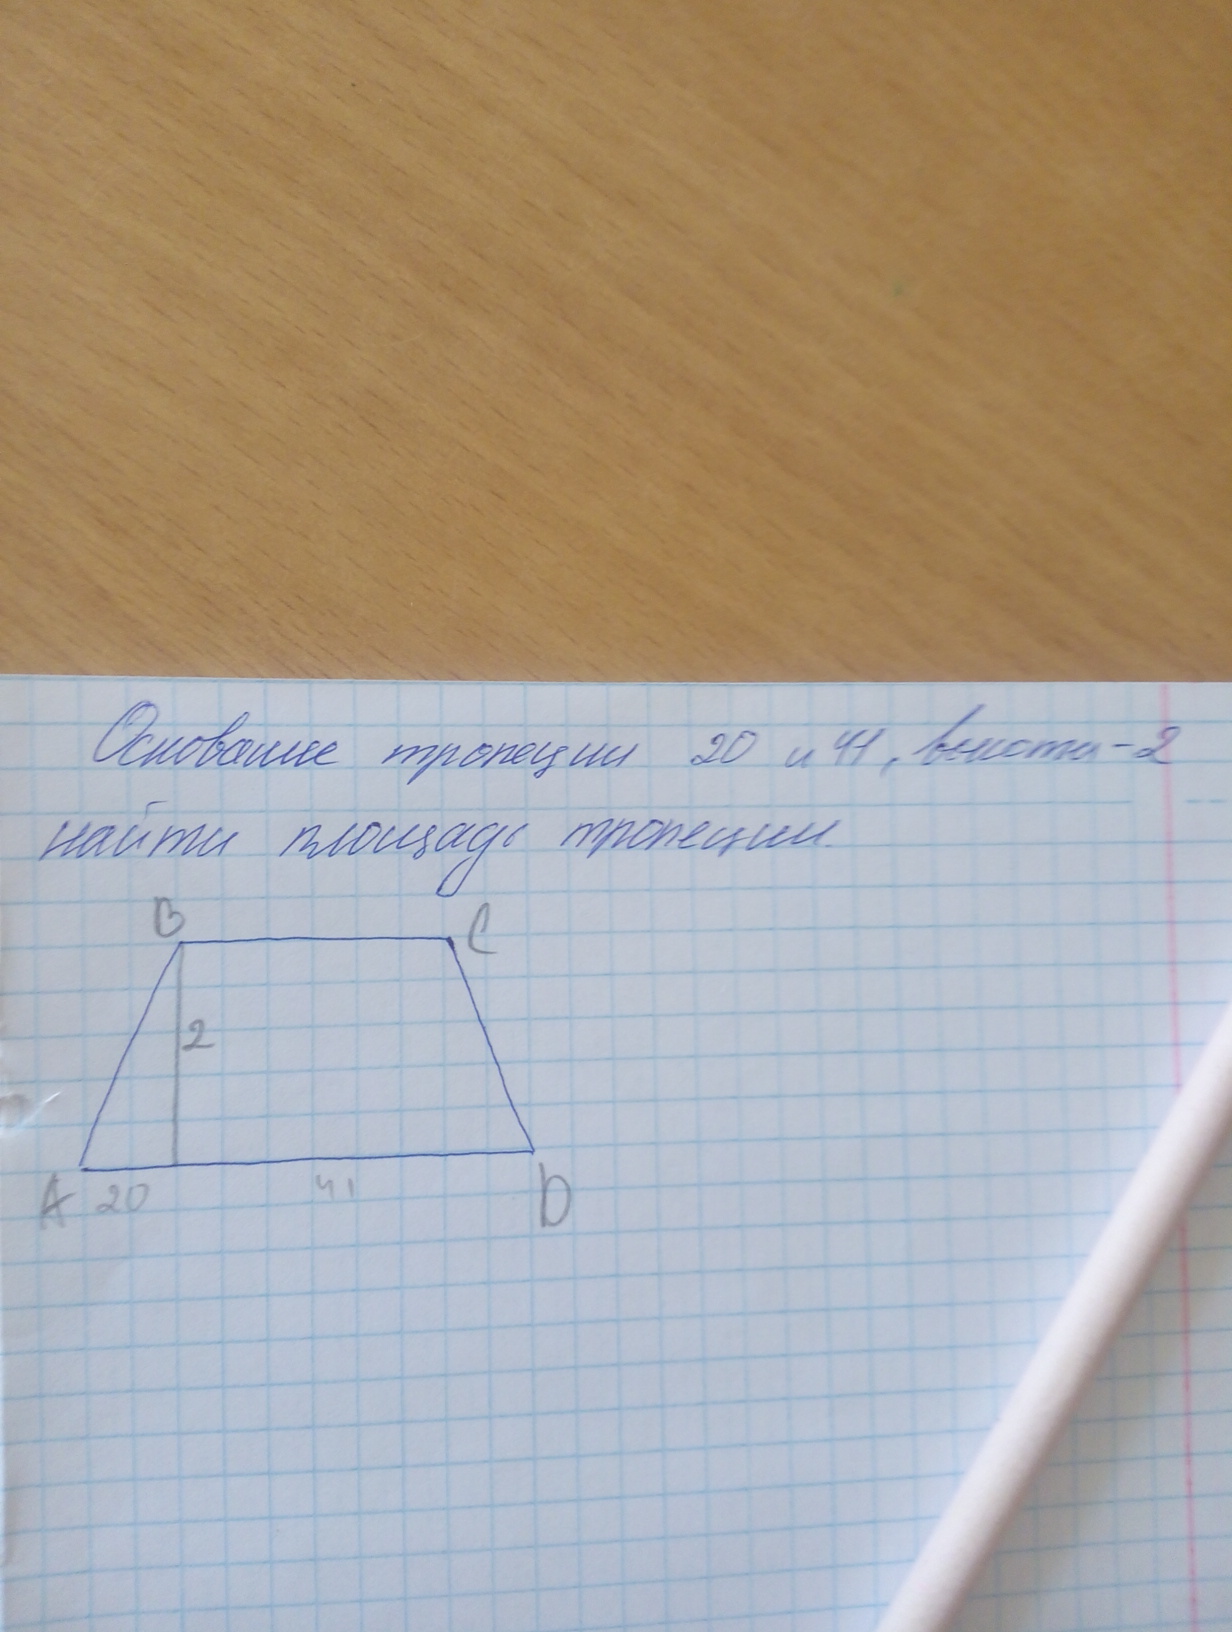 Основание тропеции 20 и 41, высота - 2
найти площадь тропеции.
B
C
2
A 20 41 D